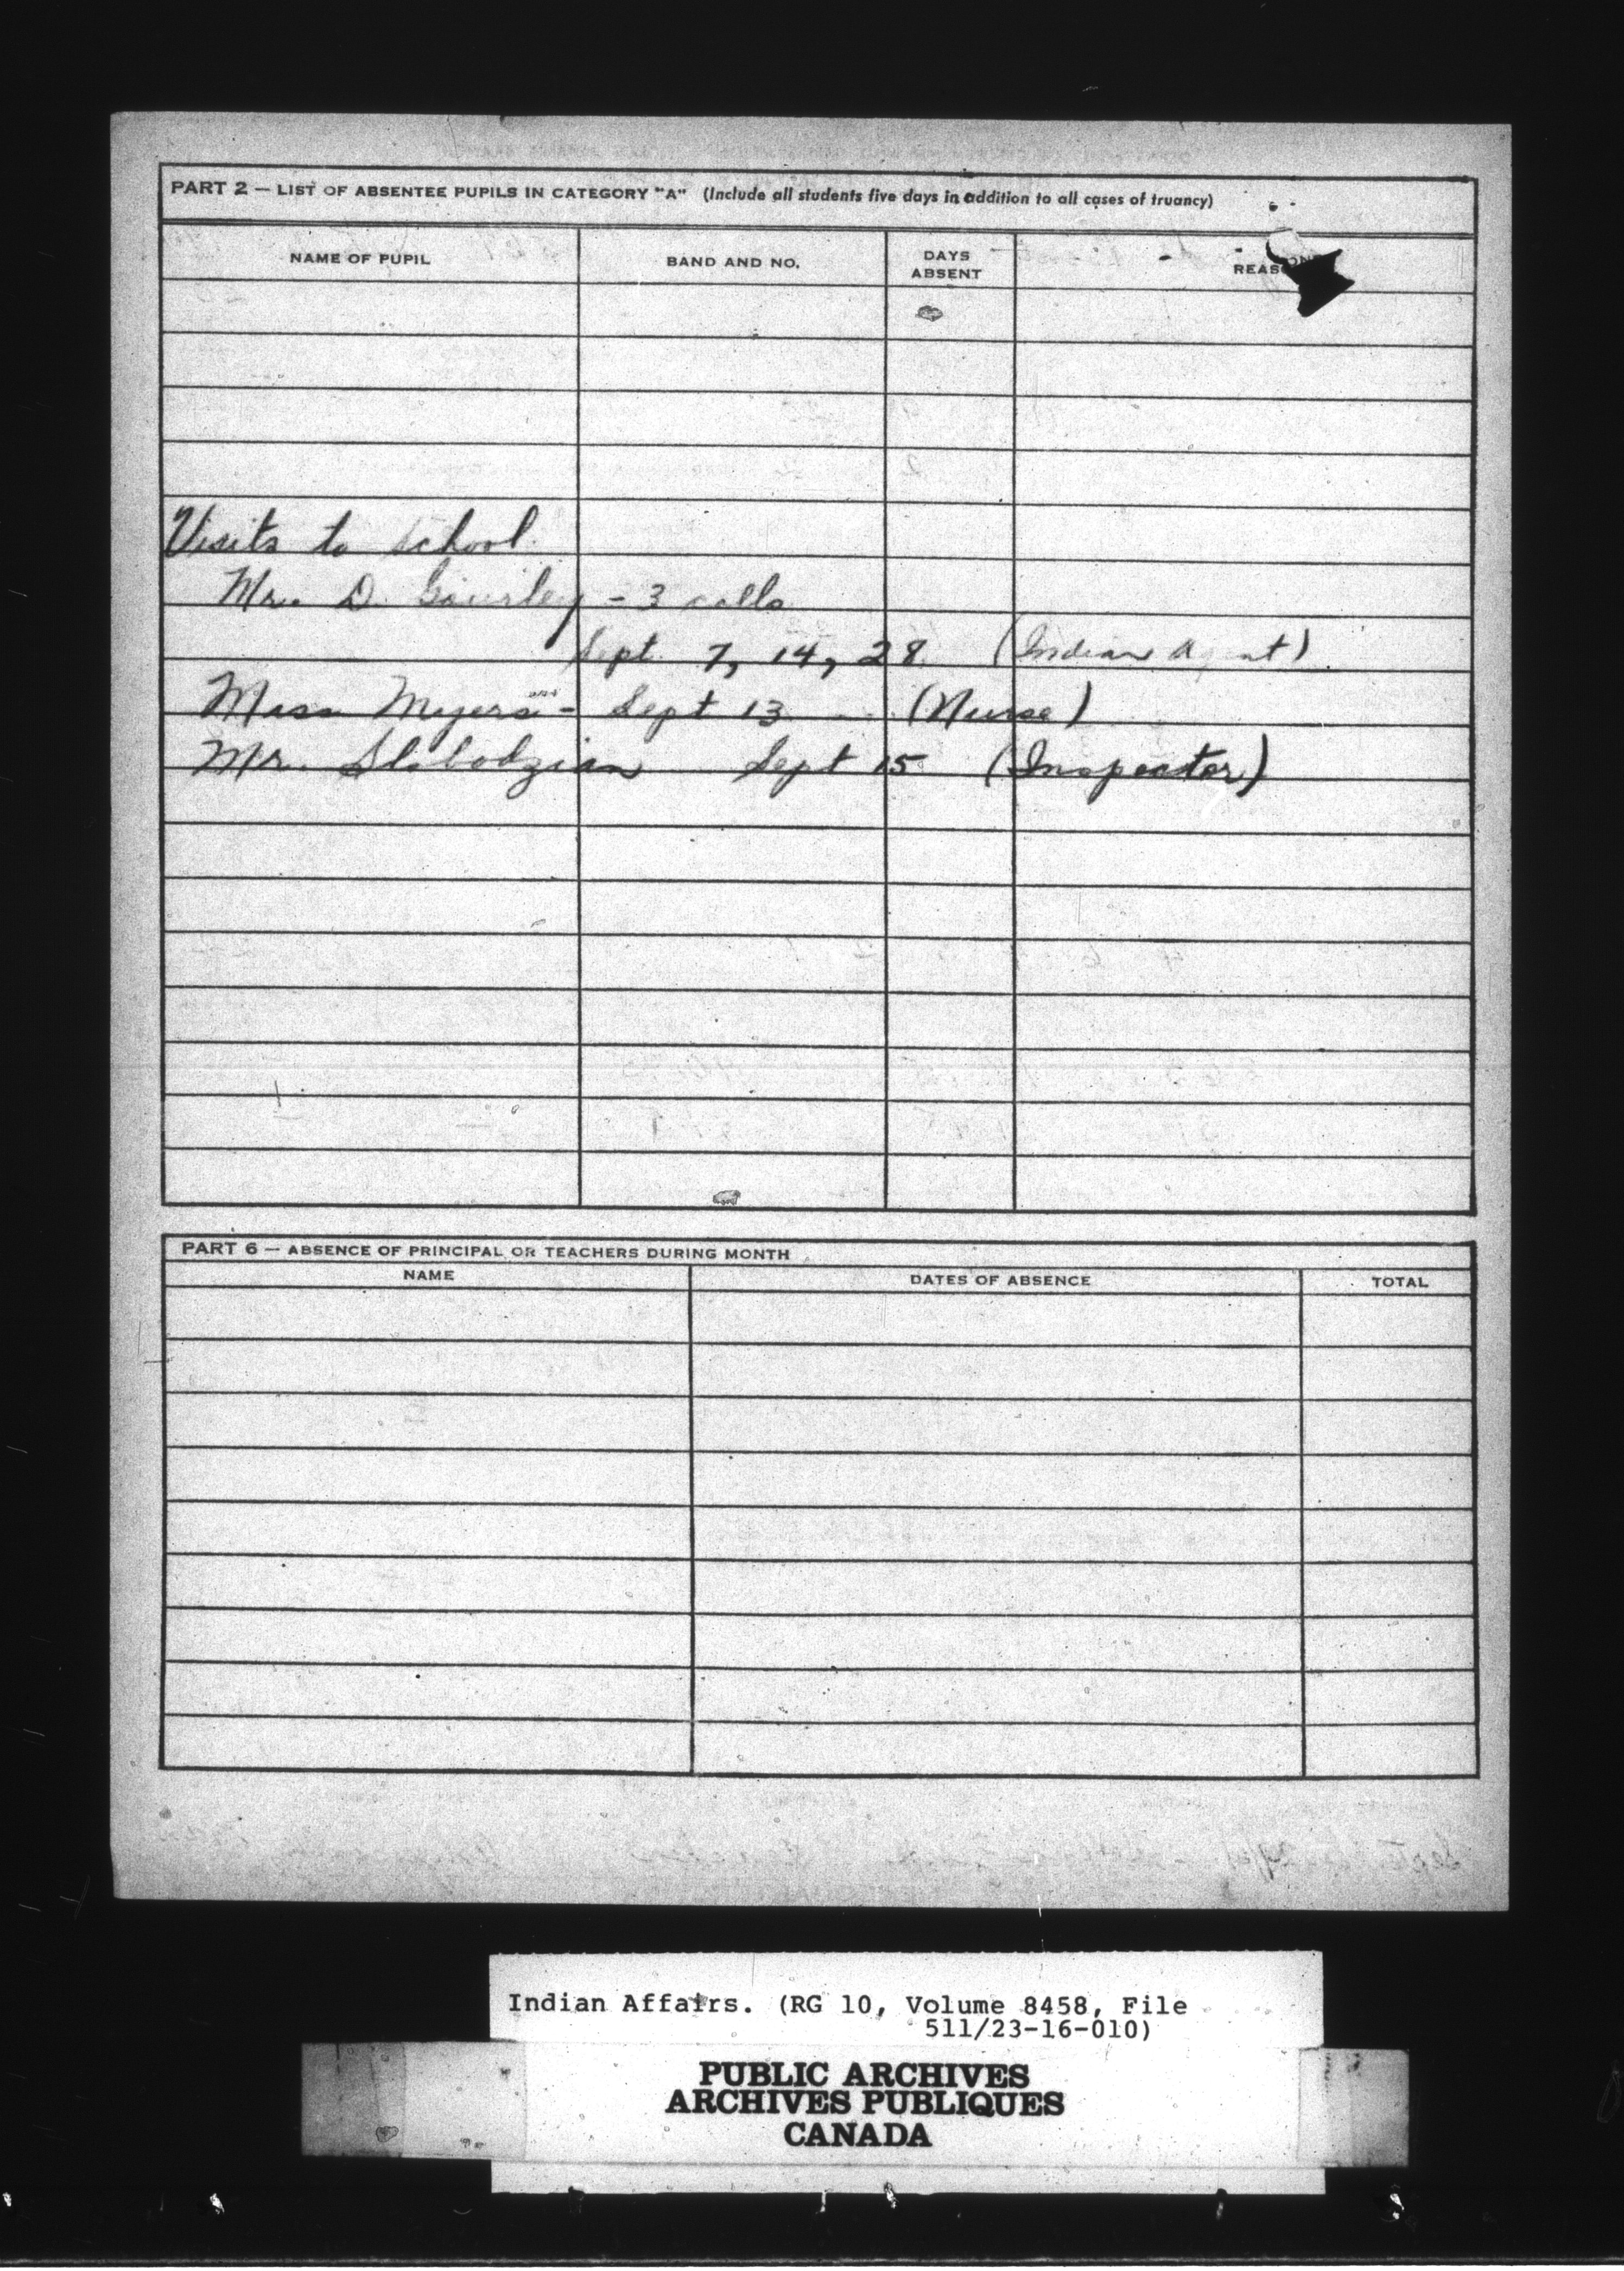 PART 2 — LIST OF ABSENTEE PUPILS IN CATEGORY "A" (Include all students five days in addition to all cases of truancy)
NAME OF PUPIL BAND AND NO. DAYS ABSENT REASONS
Visits to school.
Mr. D. Gourley - 3 calls
Sept. 7, 14, 28. (Indian Agent)
Miss Myers - Sept 13 (Nurse)
Mr. Slobodzian Sept 15 (Inspector)
PART 6 — ABSENCE OF PRINCIPAL OR TEACHERS DURING MONTH
NAME DATES OF ABSENCE TOTAL
Indian Affairs. (RG 10, Volume 8458, File
511/23-16-010)
PUBLIC ARCHIVES
ARCHIVES PUBLIQUES
CANADA